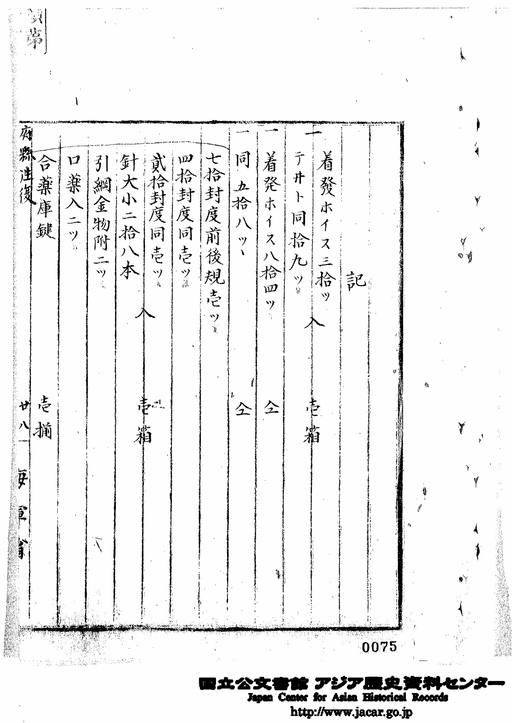 記
一 着發ホイス三拾ッ
テ井ト同拾九ッ 入 壱箱
一 着発ホイス八拾四ッ 仝
一 同 五拾八ッ 仝
七拾封度前後規壱ッ
四拾封度同壱ッ
貮拾封度同壱ッ
針大小二拾八本 入 壱箱
引綱金物附二ッ
口薬入二ッ
合薬庫鍵 壱揃
府縣往復 廿八 海軍省
0075
国立公文書館 アジア歴史資料センター
Japan Center for Asian Historical Records
http://www.jacar.go.jp